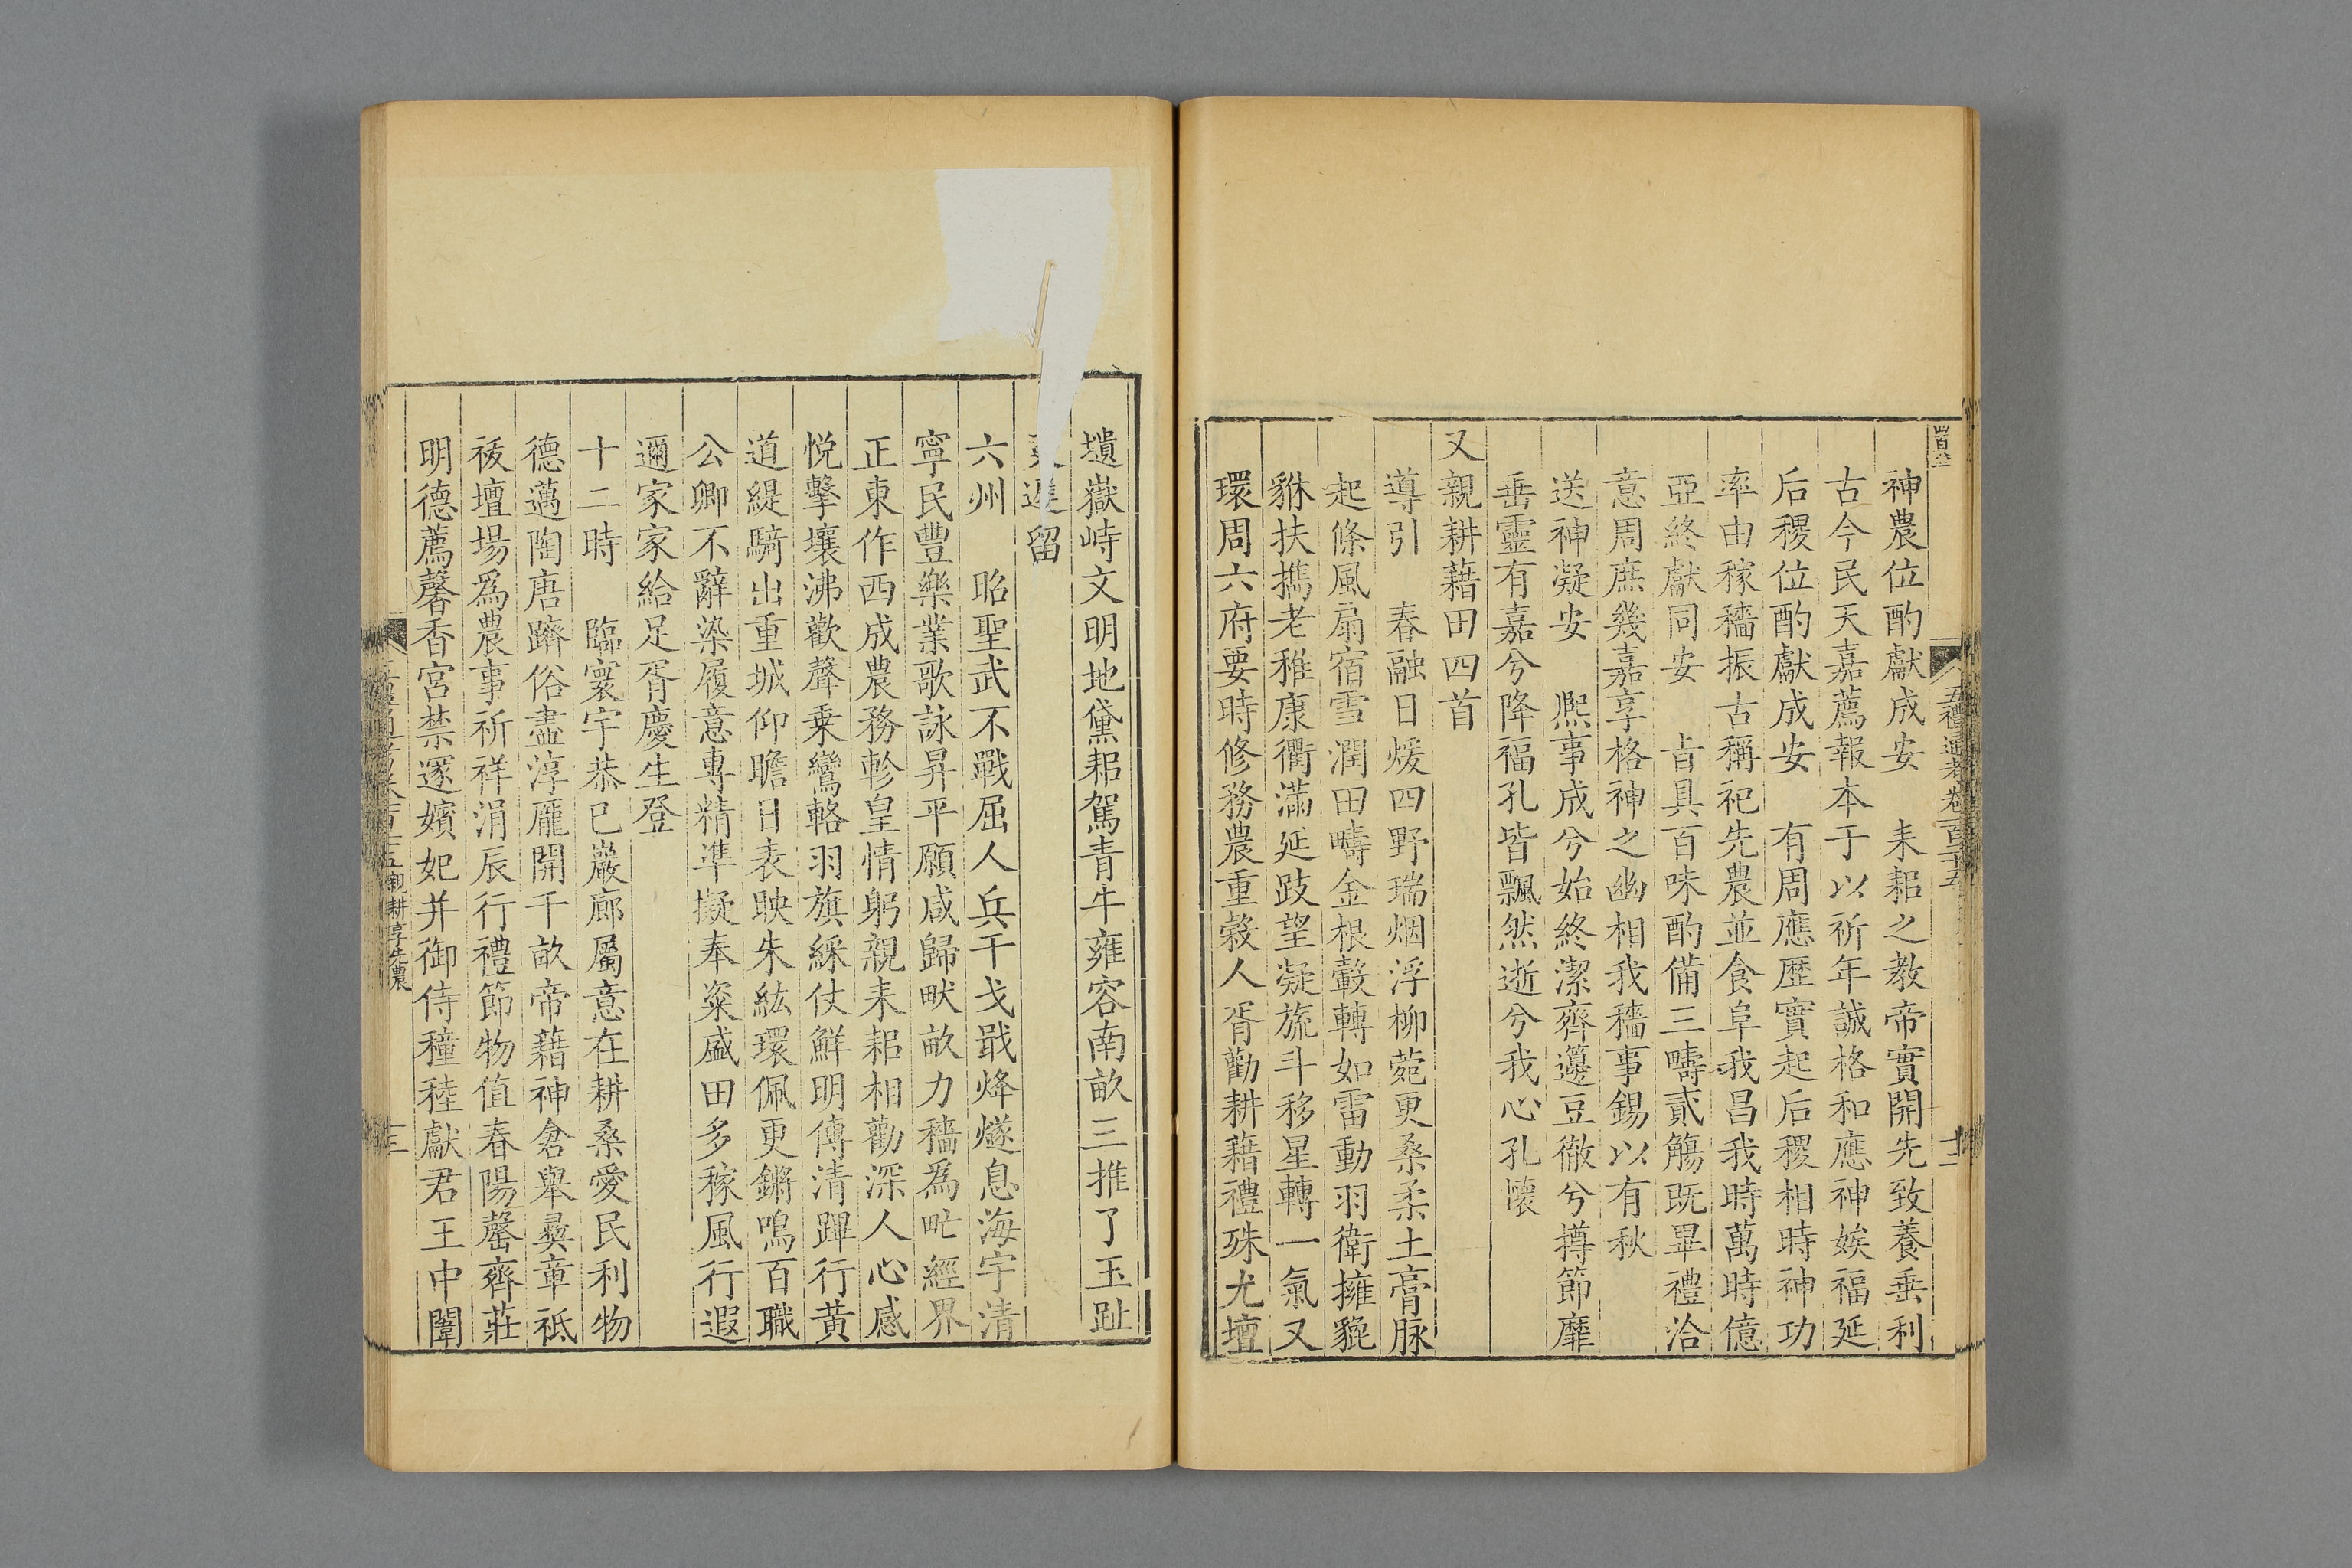 神農位酌獻成安　耒耜之教帝實開先致養垂利
古今民天嘉薦報本于以祈年誠格和應神娭福延
后稷位酌獻成安　有周應歷實起后稷相時神功
率由稼穡振古稱祀先農並食阜我昌我時萬時億
亞終獻同安　㫖具百味酌備三疇貳觴既畢禮洽
意周庶幾嘉享格神之幽相我穡事錫以有秋
送神凝安　熈事成兮始終潔齊籩豆徹兮撙節靡
垂靈有嘉兮降福孔皆飄然逝兮我心孔懷
又親耕藉田四首
導引　春融日煖四野瑞烟浮柳菀更桑柔土膏脉
起條風扇宿雪潤田疇金根轂轉如雷動羽衛擁貔
貅扶擕老稚康衢滿延跂望凝旒斗移星轉一氣又
環周六府要時修務農重穀人胥勸耕藉禮殊尤壇
壝嶽峙文明地黛耜駕青牛雍容南畝三推了玉趾
遲留
六州　昭聖武不戰屈人兵干戈戢烽燧息海宇清
寧民豐樂業歌詠昇平願咸歸畎畝力穡為甿經界
正東作西成農務軫皇情躬親耒耜相勸深人心感
悅擊壤沸歡聲乗鸞輅羽旗綵仗鮮明傳清蹕行黄
道緹騎出重城仰瞻日表映朱紘環佩更鏘鳴百職
公卿不辭染履意專精凖擬奉粢盛田多稼風行遐
邇家家給足胥慶生登
十二時　臨寰宇恭已巖廊屬意在耕桑愛民利物
德邁陶唐躋俗盡淳厖開千畝帝藉神倉舉彞章祗
祓壇場為農事祈祥涓辰行禮節物值春陽罄齊莊
明德薦馨香宮禁逐嬪妃并御侍穜稑獻君王中闈
五禮通考卷一百二十五　十二
親耕享先農　十三